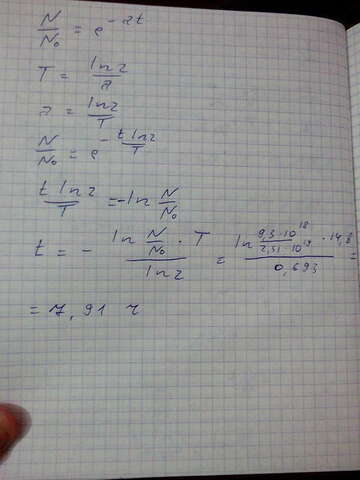 N/N₀ = e^(-at)
T = ln2/a
a = ln2/T
N/N₀ = e^(- t ln2/T)
t ln2/T = -ln N/N₀
t = - (ln N/N₀ · T)/ln2 = (ln (9,3·10^18)/(2,51·10^19) · 14,8)/0,693 =
= 7,91 ч